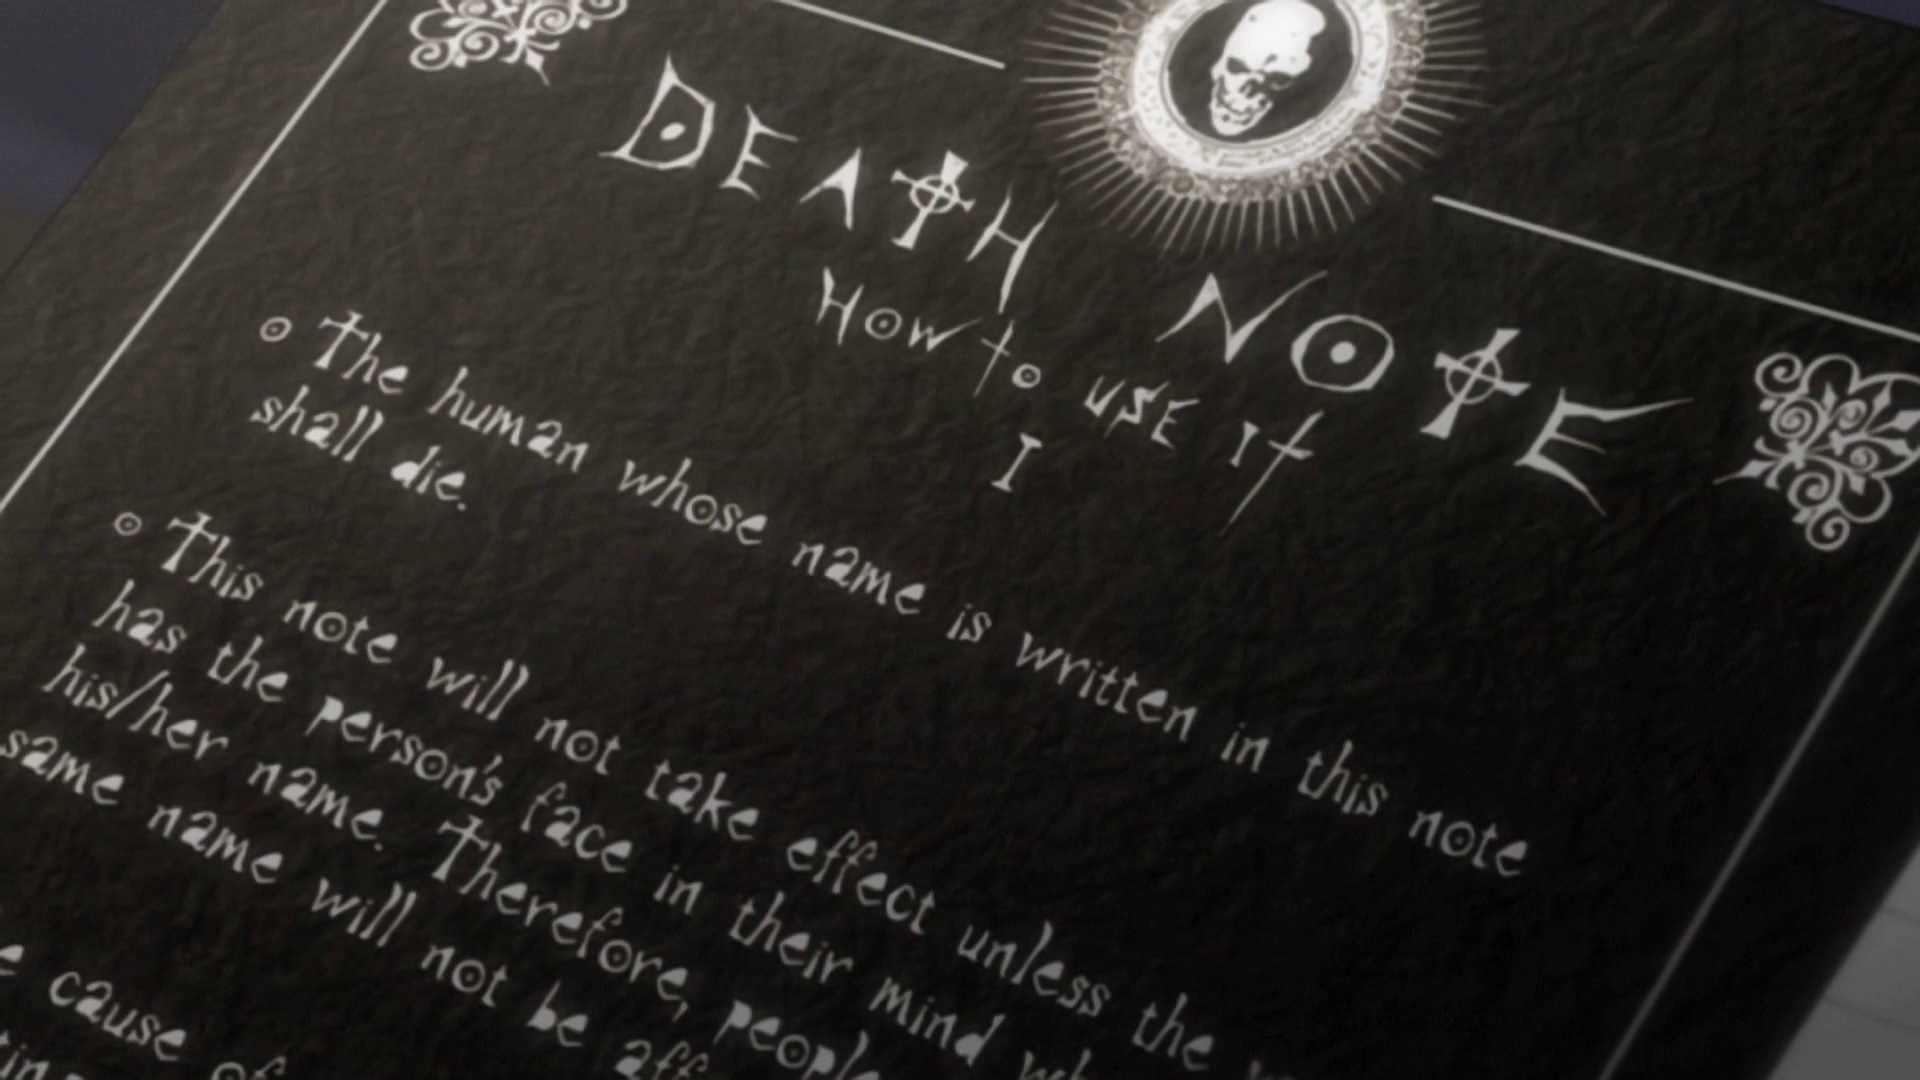 DEATH NOTE
How to USE It
I
The human whose name is written in this note
shall die.
This note will not take effect unless the
has the person's face in their mind
his/her name. Therefore,
same name will not be
cause of